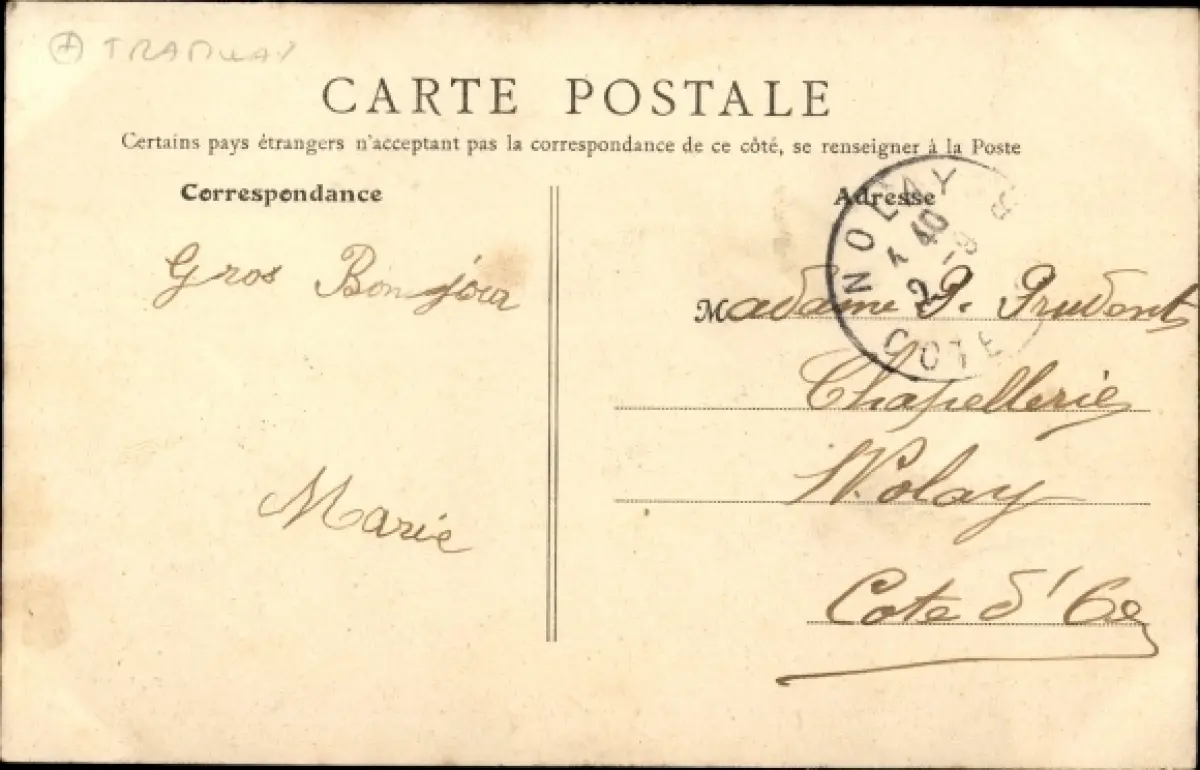 TRAMWAY
CARTE POSTALE
Certains pays étrangers n'acceptant pas la correspondance de ce côté, se renseigner à la Poste
Correspondance
Adresse
NOLAY
4 40
2 -9
COTE
Gros Bonjour
Marie
Madame P. Prudent
Chapellerie
Nolay
Cote d'Or